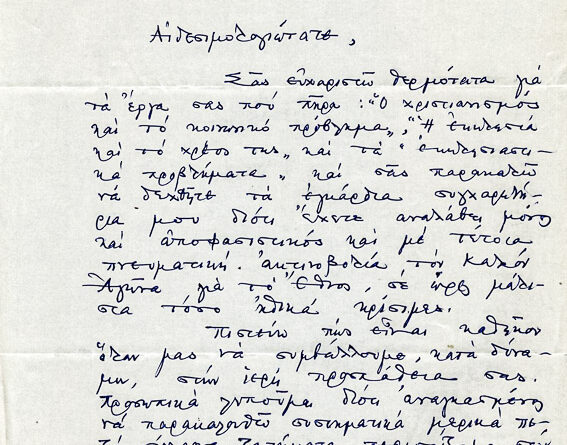 Αἰδεσιμολογιώτατε,
Σᾶς εὐχαριστῶ θερμότατα γιὰ
τὰ ἔργα σας ποὺ πῆρα : "Ὁ χριστιανισμὸς
καὶ τὸ κοινωνικὸ πρόβλημα", "Ἡ ἐκκλησία
καὶ τὸ χρέος της" καὶ τὰ "ἐκκλησιαστι-
κὰ προβλήματα" καὶ σᾶς παρακαλῶ
νὰ δεχθῆτε τὰ ἐγκάρδια συγχαρητή-
ρια μου διότι ἔχετε ἀναλάβει μόνος
καὶ ἀποφασιστικὸς καὶ μὲ τέτοια
πνευματικὴ ἀκτινοβολία τὸν Καλὸν
Ἀγῶνα γιὰ τὸ Ἔθνος, σὲ ὧρες μάλι-
στα τόσο ἠθικὰ κρίσιμες.
Πιστεύω πὼς εἶναι καθῆκον
ὅλων μας νὰ συμβάλλουμε, κατὰ δύνα-
μιν, στὴν ἱερὴ προσπάθεια σας.
Προσωπικὰ λυποῦμαι διότι ἀναγκασμένος
νὰ παρακολουθῶ συστηματικὰ μερικὰ